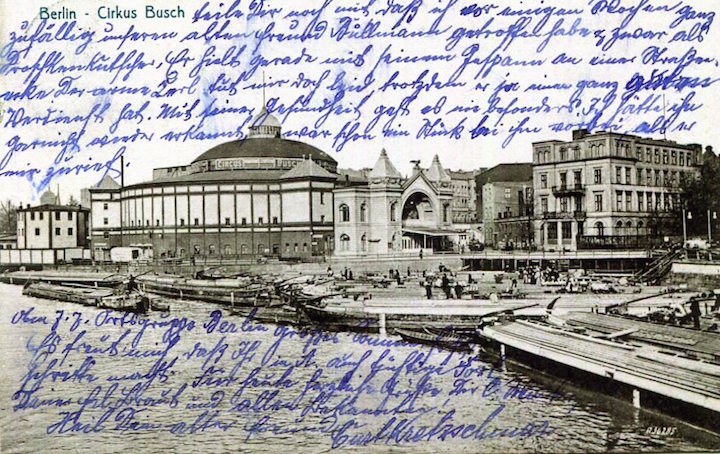 Berlin - Cirkus Busch
teile Dir noch mit daß ich vor einigen Wochen ganz
zufällig unseren alten Freund Bullmann getroffen habe & zwar als
Droschkenkutscher. Er hielt gerade mit seinem Gespann an einer Straßen-
ecke Der arme Kerl tut mir doch leid trotzdem er ja einen ganz guten
Verdienst hat. Mit seiner Gesundheit geht es nie besonders. Ich hätte ihn
garnicht wieder erkannt, war schon ein Stück bei ihm vorbei als er
mir zurief.
CIRCUS BUSCH
Am 7.7. Ortsgruppe Berlin großes
Es freut mich daß Ihr mit auf
schritte macht. Für heute Grüße Dir
und allen Bekannten
Heil Dein alter Freund Curt Kretzschmar
A36285